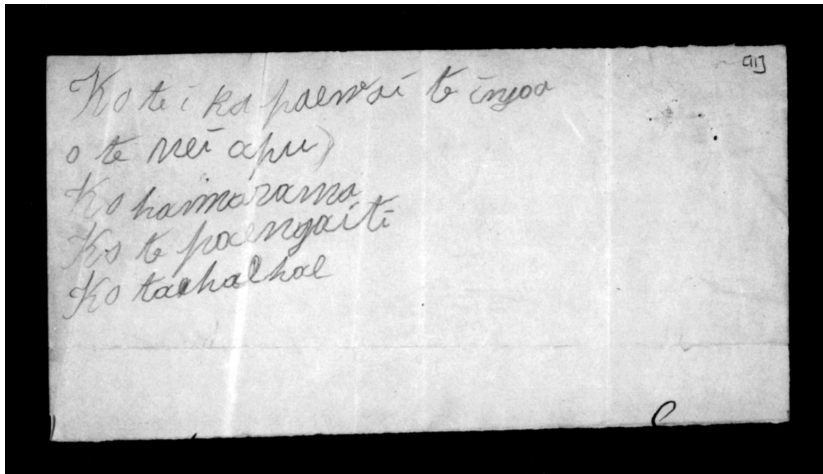 Ko te i ka paewai te ingoa
o te nei apu)
Ko haimarama
Ko te paengaiti
Ko tachalhal